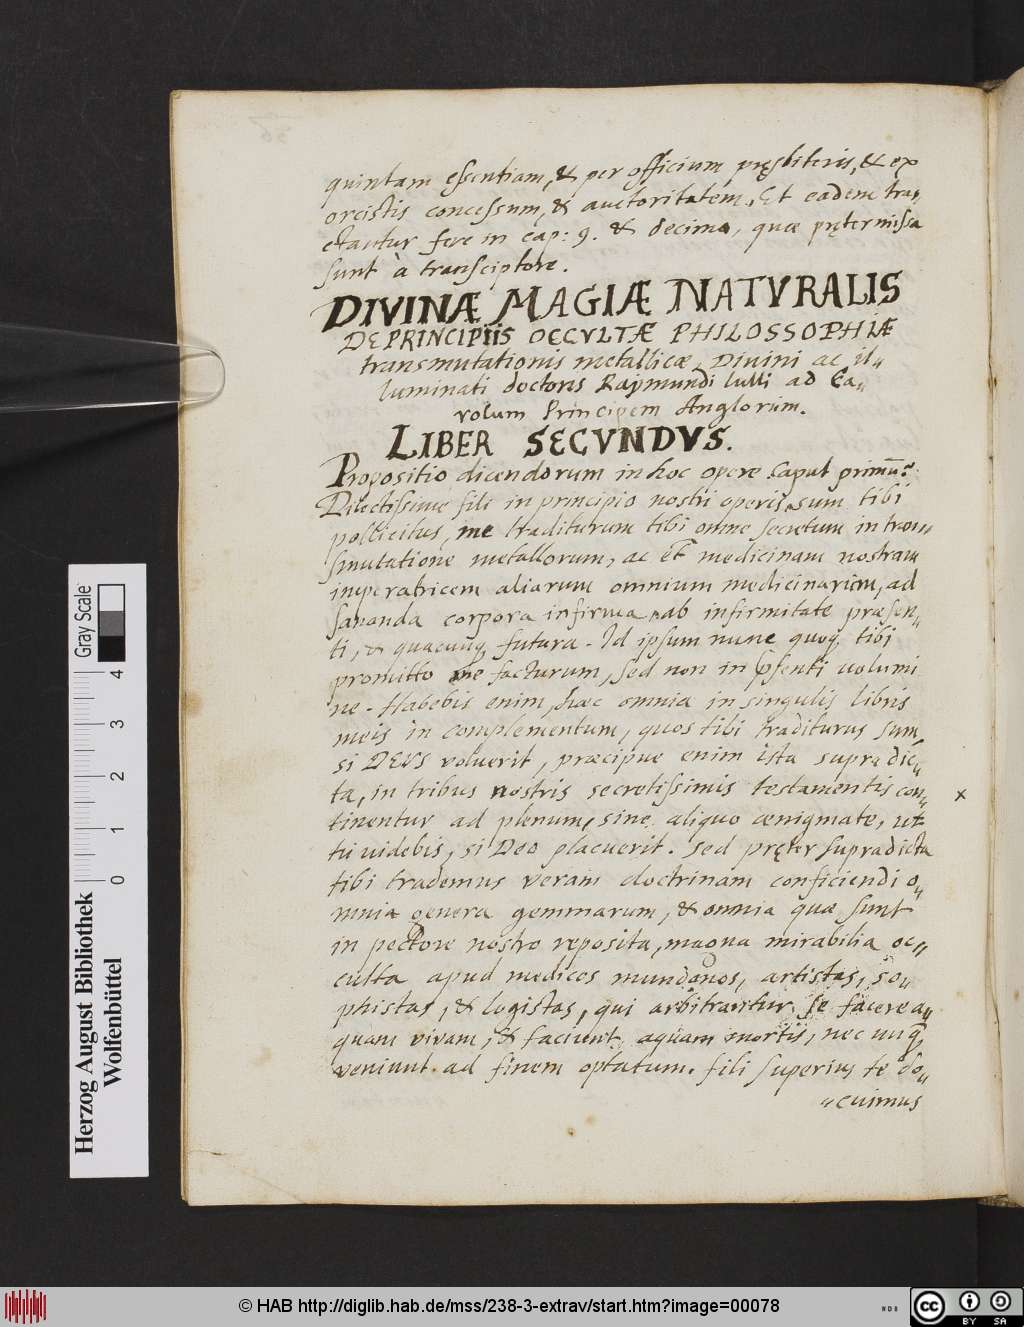 quintam essentiam, & per officium pręsbiteris, & ex
orcistis concessum, & auctoritatem. Et eadem tra„
ctantur fere in cap: 9. & decimo, quæ prętermissa
sunt à transciptore.
DIVINÆ MAGIÆ NATVRALIS
DE PRINCIPIIS OCCVLTÆ PHILOSSOPHIÆ
transmutationis metallicæ, Divini ac il„
luminati doctoris Raymundi lulli ad Ca„
rolum Principem Anglorum.
LIBER SECVNDVS.
Propositio dicendorum in hoc opere Caput primū.
Dilectissime fili in principio nostri operis sum tibi
pollicitus, me traditurum tibi omne secretum in tran„
smutatione metallorum, ac et medicinam nostram
imperatricem aliarum omnium medicinarum, ad
sananda corpora infirma ab infirmitate præsen„
ti, & quacunq, futura. Id ipsum nunc quoq, tibi
promitto me facturum, sed non in pſenti volumi
ne. Habebis enim hæc omnia in singulis libris
meis in complementum, quos tibi traditurus sum,
si DEVS voluerit, præcipue enim ista supradic„
ta, in tribus nostris secretissimis testamentis con„
tinentur ad plenum, sine aliquo ænigmate, ut
tu videbis, si Deo placuerit. Sed pręter supradicta
tibi trademus veram doctrinam conficiendi o„
mnia genera gemmarum, & omnia quæ sunt
in pectore nostro reposita, magna mirabilia oc„
culta apud medicos mundanos, artistas, so„
phistas, & logistas, qui arbitrantur se facere a„
quam vivam, & faciunt aquam mortis, nec unq̄
veniunt ad finem optatum. fili superius te do„
„cuimus
x
Herzog August Bibliothek
Wolfenbüttel
0 1 2 3 4
Gray Scale
© HAB http://diglib.hab.de/mss/238-3-extrav/start.htm?image=00078
NDB
cc BY SA